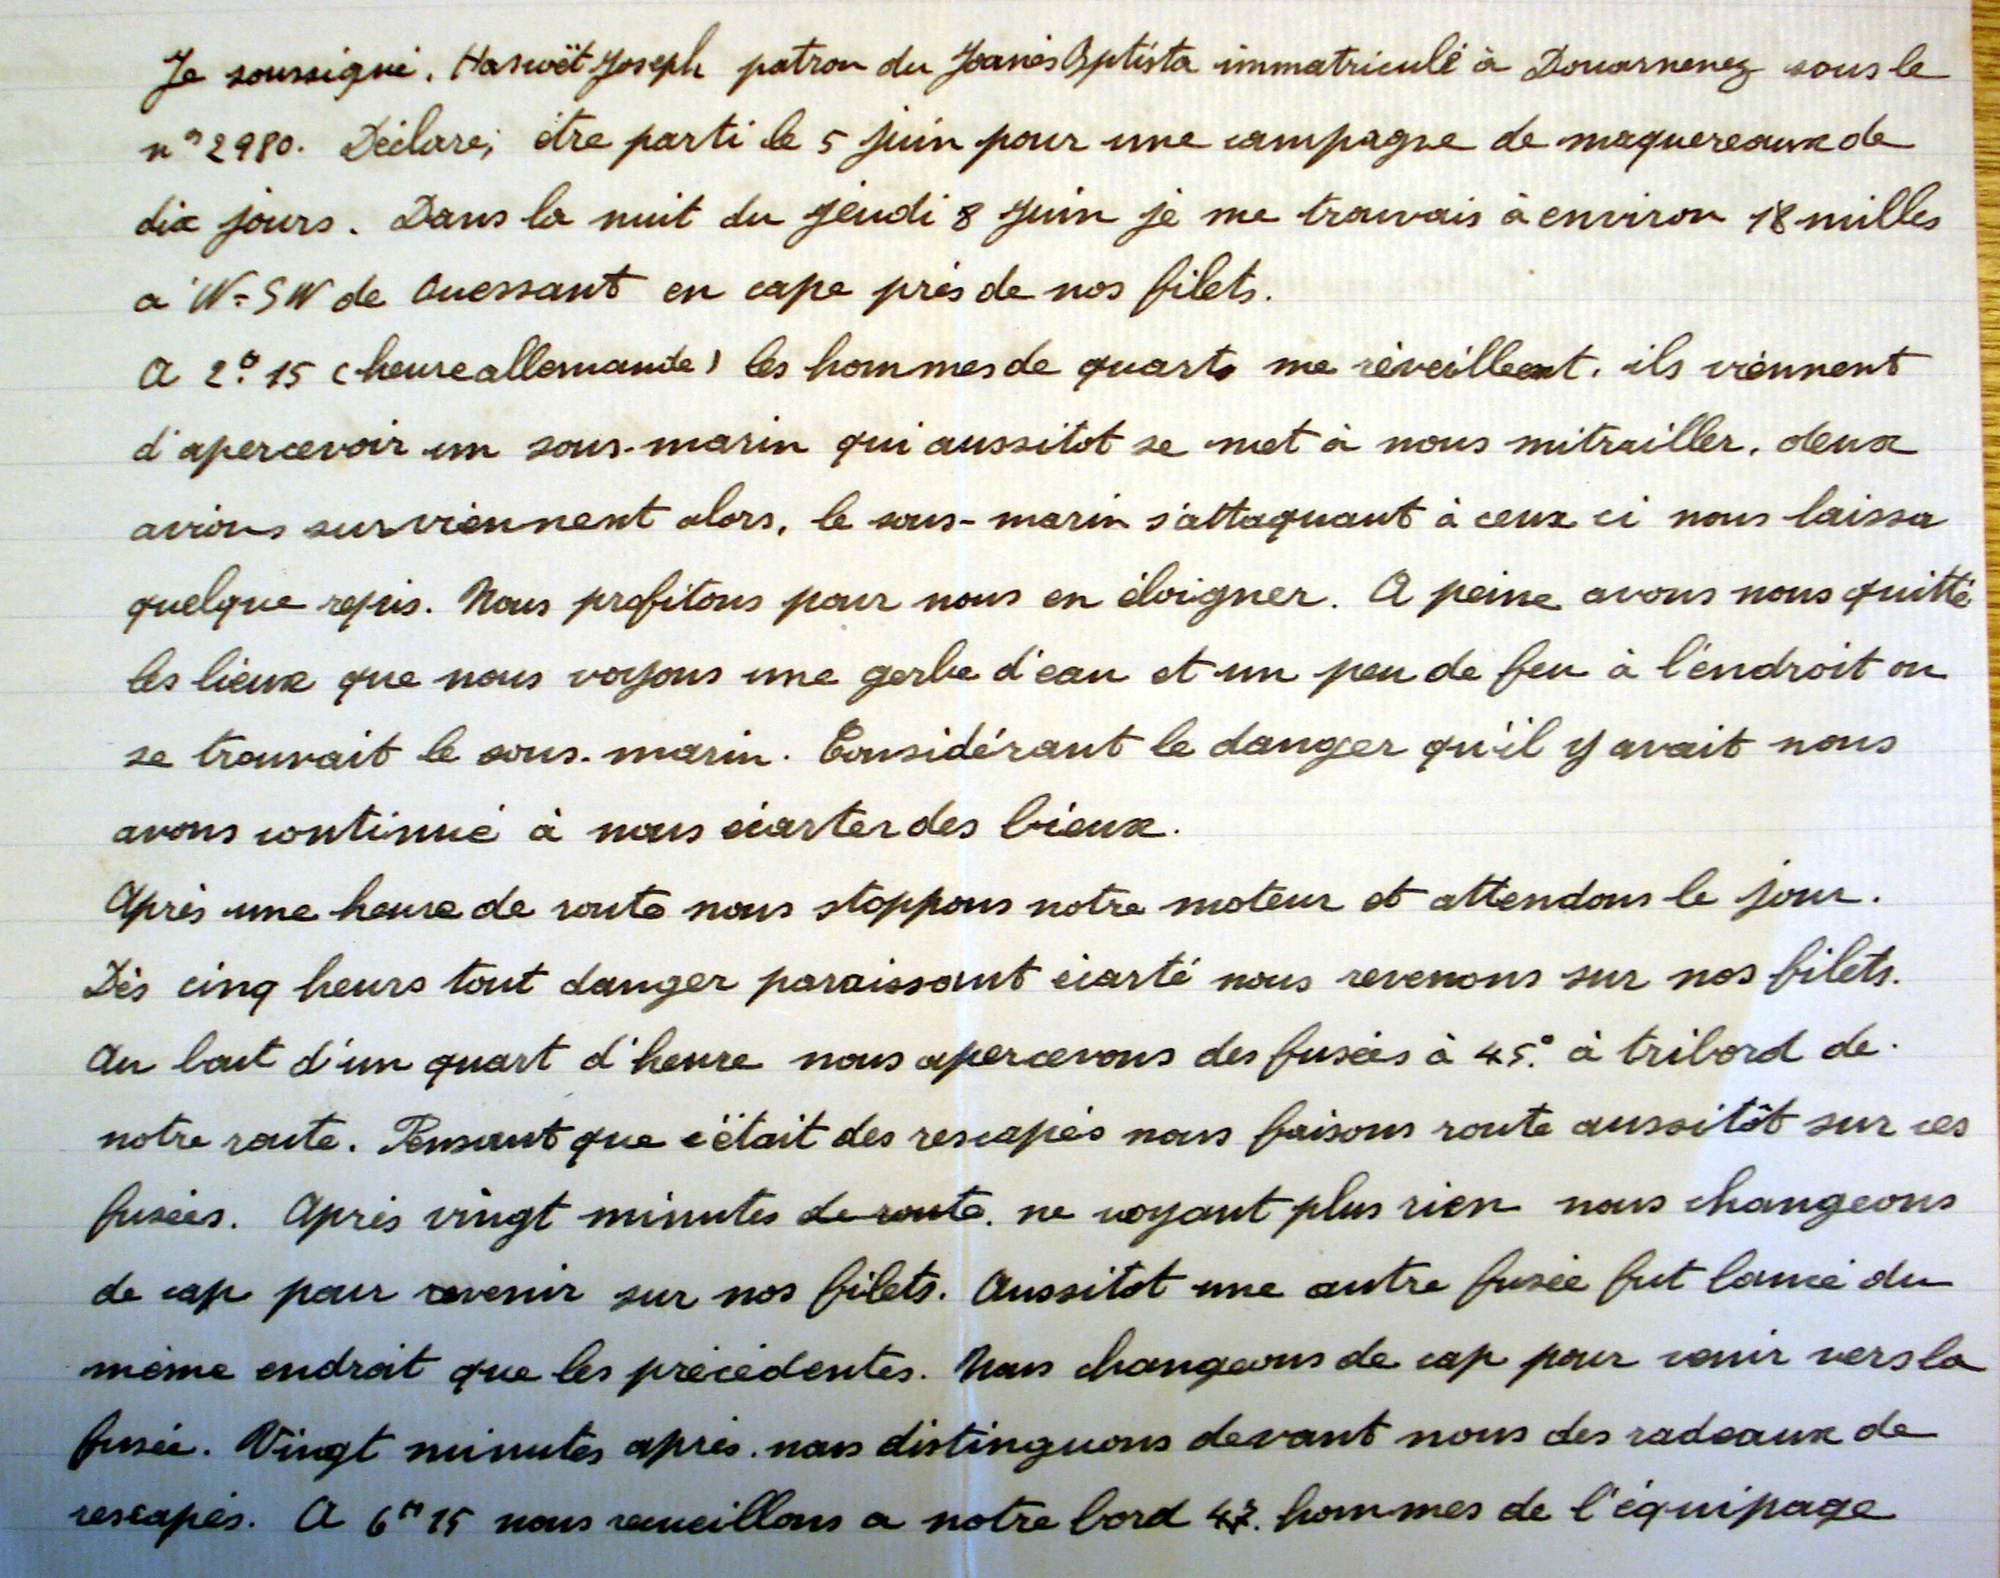 Je soussigné, Hascoët Joseph patron du Joanès Bptista immatriculé à Douarnenez sous le
n° 2980. Déclare, être parti le 5 juin pour une campagne de maquereaux de
dix jours. Dans la nuit du jeudi 8 juin je me trouvais à environ 18 milles
a W-SW de Ouessant en cape près de nos filets.
A 2° 15 (heure allemande) les hommes de quart me réveillent. ils viennent
d'apercevoir un sous-marin qui aussitot se met à nous mitrailler. deux
avions surviennent alors, le sous-marin s'attaquant à ceux ci nous laissa
quelque repis. Nous profitons pour nous en éloigner. A peine avons nous quitté
les lieux que nous voyons une gerbe d'eau et un peu de feu à l'endroit ou
se trouvait le sous-marin. Considérant le danger qu'il y avait nous
avons continué à nous écarter des lieux.
Après une heure de route nous stoppons notre moteur et attendons le jour.
Dès cinq heurs tout danger paraissant écarté nous revenons sur nos filets.
Au bout d'un quart d'heure nous apercevons des fusées à 45° à tribord de
notre route. Pensant que c'était des rescapés nous faisons route aussitôt sur ces
fusées. Après vingt minutes de route. ne voyant plus rien nous changeons
de cap pour revenir sur nos filets. Aussitot une autre fusée fut lancé du
même endroit que les précédentes. Nous changeons de cap pour venir vers la
fusée. Vingt minutes après. nous distinguons devant nous des radeaux de
rescapés. A 6ʰ 15 nous recueillons a notre bord hommes de l'équipage